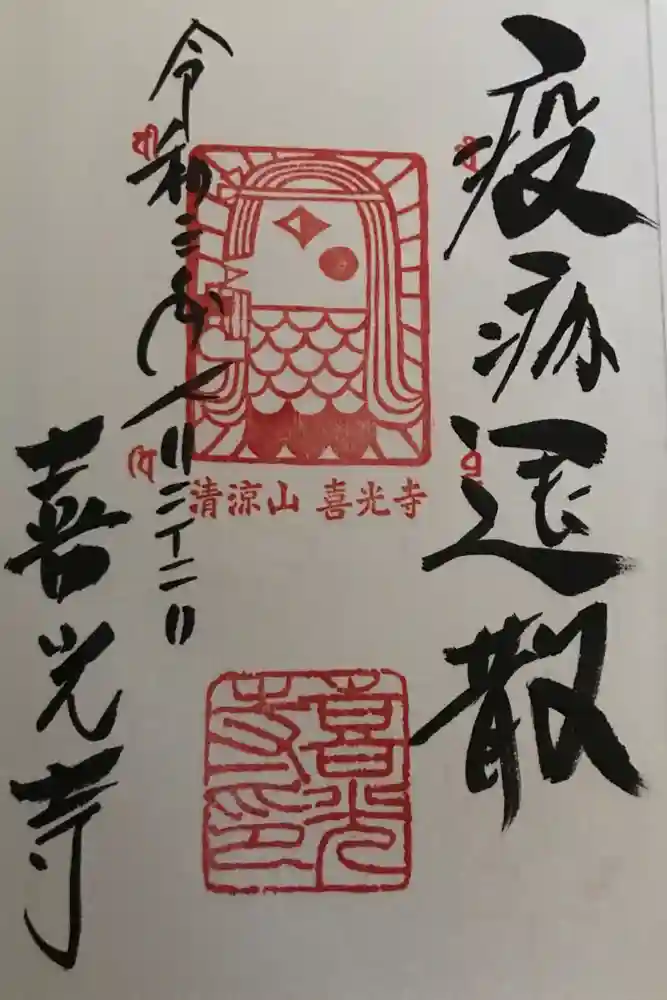 疫病退散
令和二年八月二十二日
清涼山 喜光寺
喜光寺
喜光
寺印